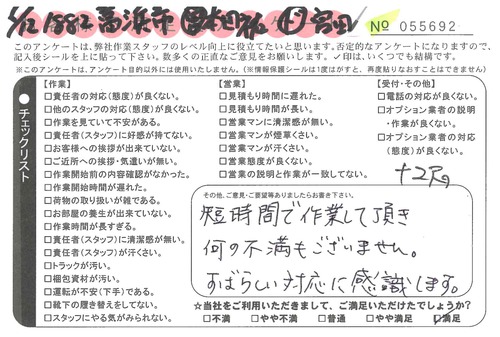 5/12 1882 高浜市
No 055692
このアンケートは、弊社作業スタッフのレベル向上に役立てたいと思います。否定的なアンケートになりますので、
記入後シールを上に貼って下さい。数多くの正直なご意見をお願いします。✓印は、いくつでも結構です。
※このアンケートは、アンケート目的以外には使用いたしません。(※情報保護シールは1度はがすと、再度貼りなおすことはできません)
チェックリスト
【作業】
□責任者の対応(態度)が良くない。
□他のスタッフの対応(態度)が良くない。
□作業を見ていて不安がある。
□責任者(スタッフ)に好感が持てない。
□お客様への挨拶が出来ていない。
□ご近所への挨拶・気遣いが無い。
□作業開始前の内容確認がなかった。
□作業開始時間が遅れた。
□荷物の取り扱いが雑である。
□お部屋の養生が出来ていない。
□作業時間が長すぎる。
□責任者(スタッフ)に清潔感が無い。
□責任者(スタッフ)が汗くさい。
□トラックが汚い。
□梱包資材が汚い。
□運転が不安(下手)である。
□靴下の履き替えをしてない。
□スタッフにやる気がみられない。
【営業】
□見積もり時間に遅れた。
□見積もり時間が長い。
□営業マンに清潔感が無い。
□営業マンが煙草くさい。
□営業マンが汗くさい。
□営業態度が良くない。
□営業の説明と作業が一致してない。
【受付・その他】
□電話の対応が良くない。
□オプション業者の説明
・作業が良くない。
□オプション業者の対応
(態度)が良くない。
その他、ご意見・ご要望等ありましたらお書き下さい。
短時間で作業して頂き
何の不満もございません。
すばらしい対応に感識します。
☆当社をご利用いただきまして、ご満足いただけたでしょうか?
□不満 □やや不満 □普通 □やや満足 ☑満足